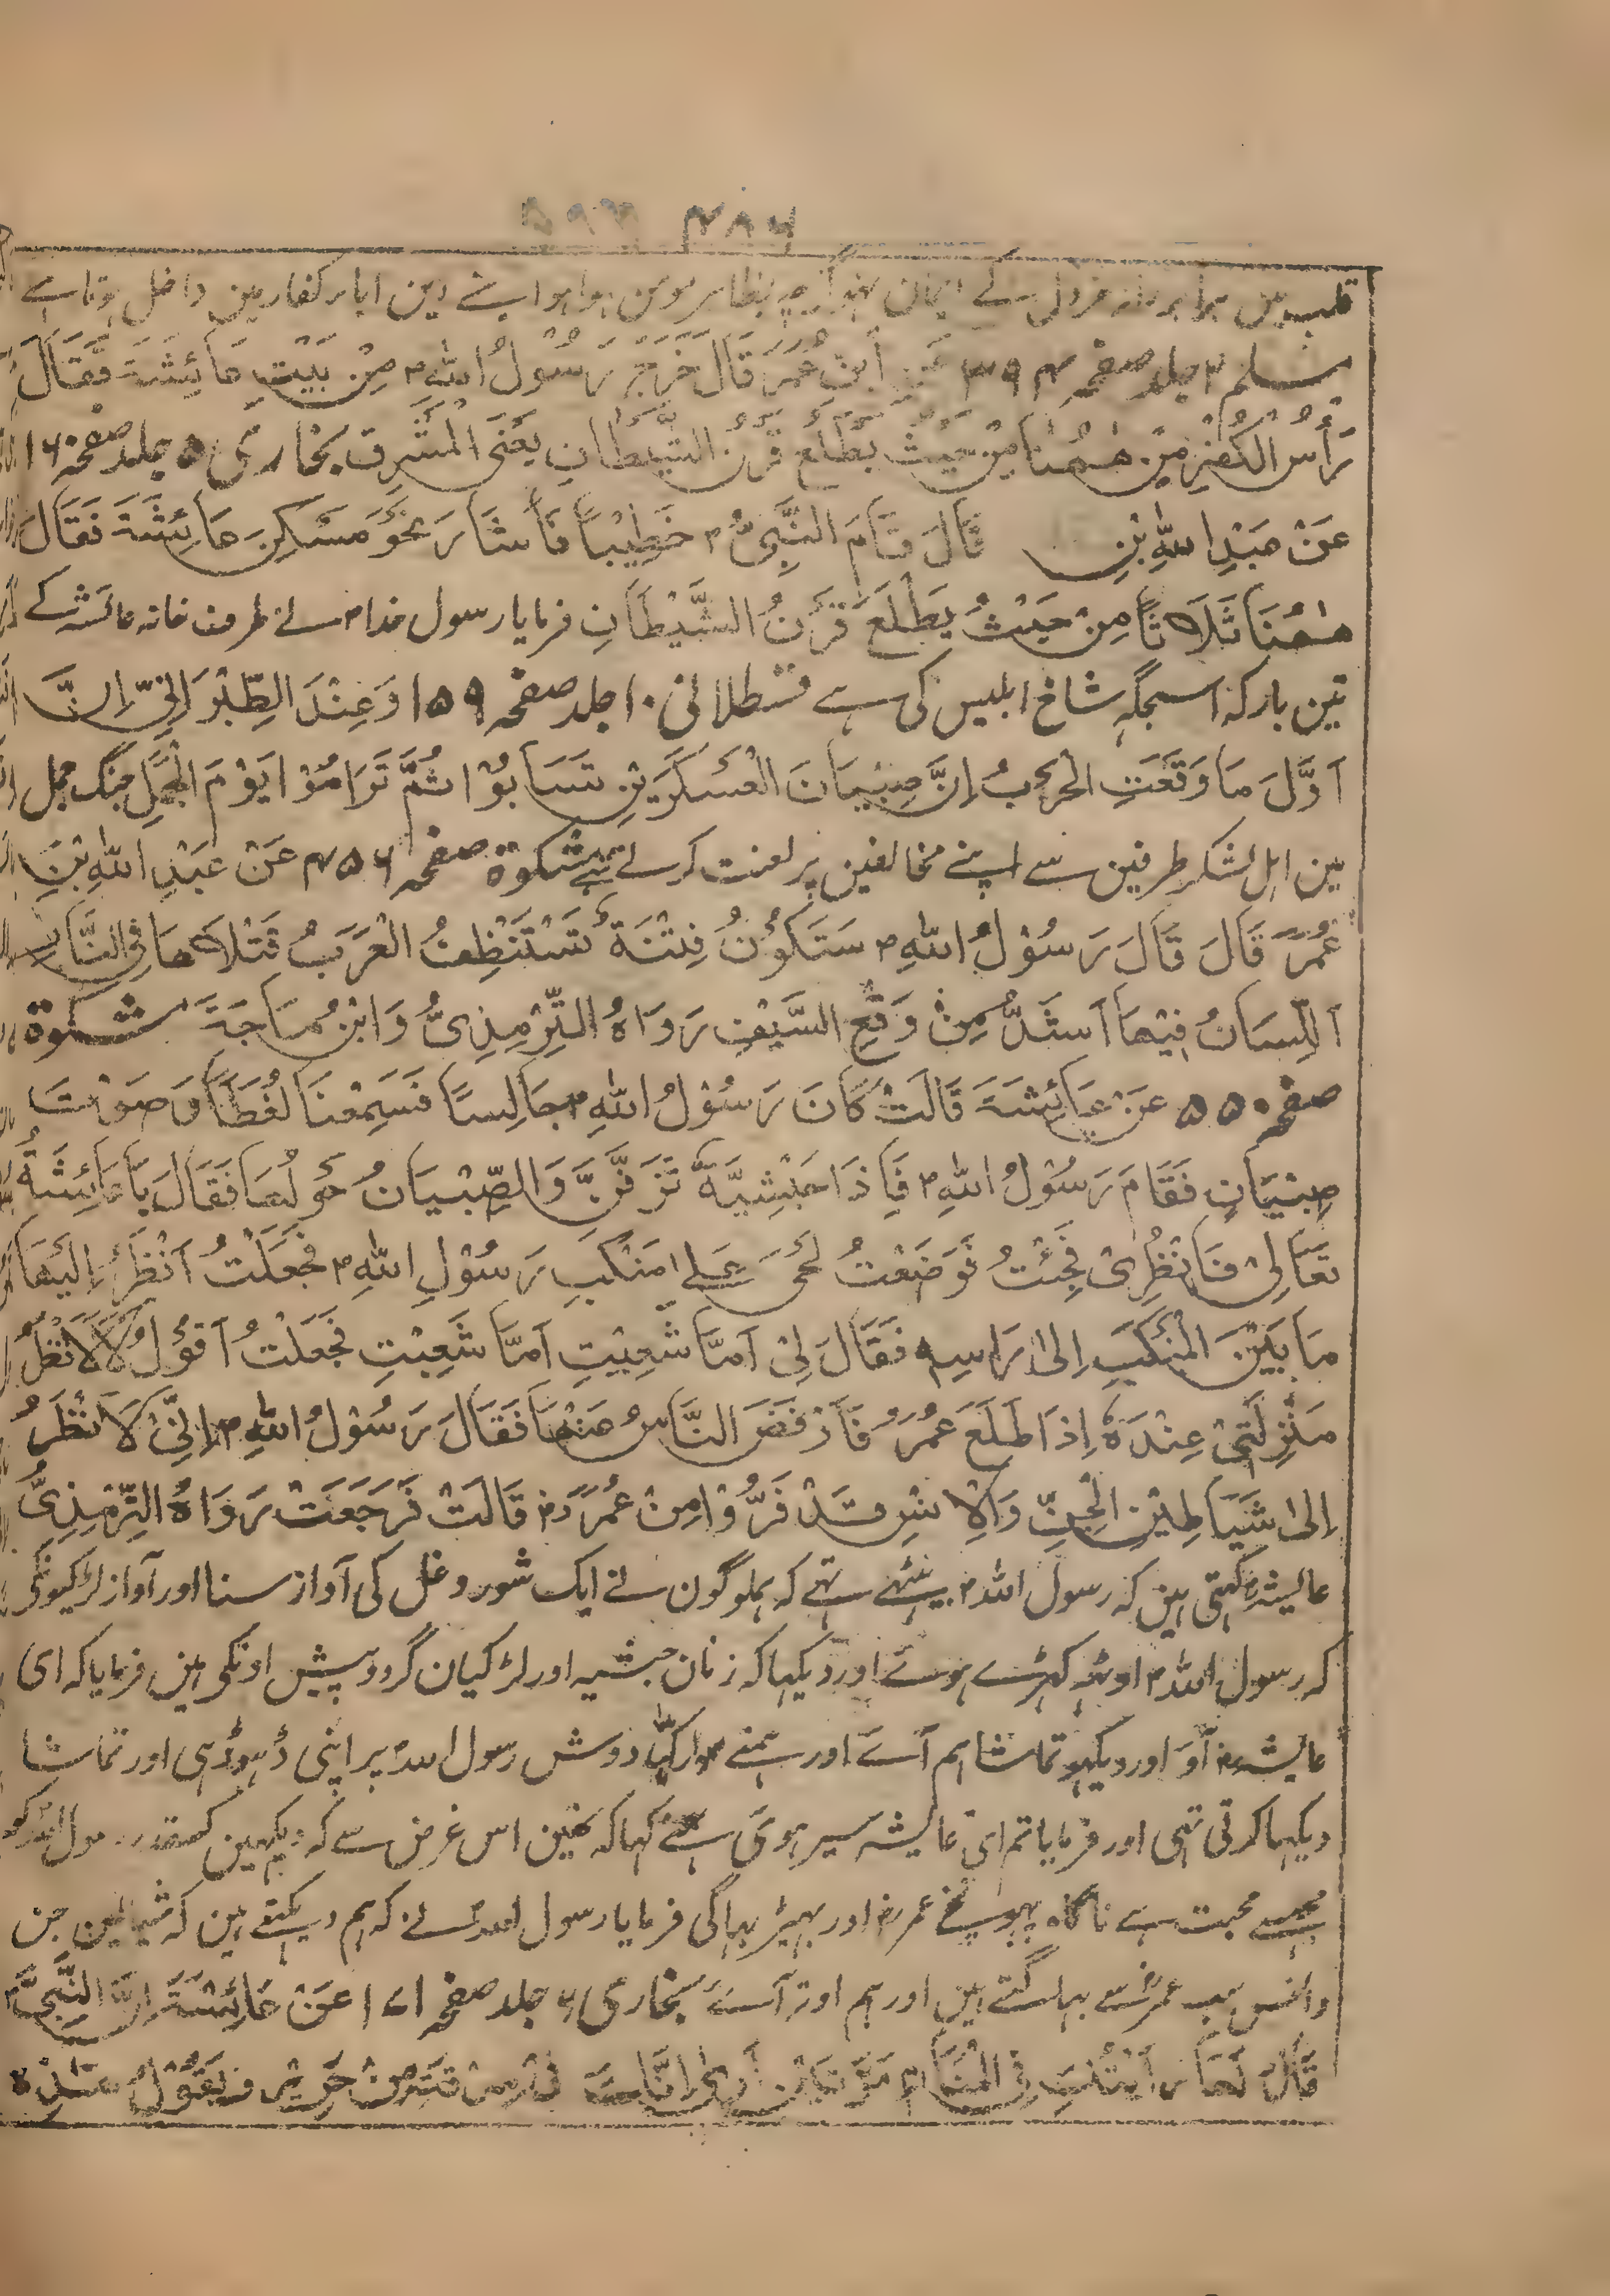 ۴۸۶
قلب مین برابر دانہ خردل کے ایمان بظاہر مومن ہوا ہو اپنے دین ابابر کفار مین داخل ہوتا ہے
مسلم ۲ جلد صفحہ ۳۹۴ عَنِ ابْنِ عُمَرَ قَالَ خَرَجَ رَسُوْلُ اللّٰهِ ؐ مِنْ بَيْتِ عَائِشَةَ فَقَالَ
رَأْسُ الْكُفْرِ مِنْ هٰهُنَا مِنْ حَيْثُ يَطْلَعُ قَرْنُ الشَّيْطَانِ يَعْنَى الْمَشْرِق بخاری ۵ جلد صفحہ ۱۶
عَنْ عَبْدِ اللّٰهِ بْنِ قَالَ قَامَ النَّبِىُّ ؐ خَطِيْبًا فَأَشَارَ نَحْوَ مَسْكَنِ عَائِشَةَ فَقَالَ
هٰهُنَا ثَلَاثًا مِنْ حَيْثُ يَطْلَعُ قَرْنُ الشَّيْطَانِ فرمایا رسول خدا ؐ نے طرف خانہ عائشہ کے
تین بار کہ اسجگہ شاخ ابلیس کی ہے قسطلانی ۱۰ جلد صفحہ ۱۵۹ وَعِنْدَ الطِّبْرَانِيّ إِنَّ
اَوَّلَ مَا وَقَعَتِ الْحَرْبُ إِنَّ صِبْيَانَ الْعَسْكَرَيْنِ تَسَابُوْا ثُمَّ تَرَامُوْا يَوْمَ الْجَمَلِ جنگ جمل
مین اہل لشکر طرفین سے اپنے مخالفین پر لعنت کرتے تھے مشکوۃ صفحہ ۴۵۶ عَنْ عَبْدِ اللّٰهِ بْنِ
عُمَرَ قَالَ قَالَ رَسُوْلُ اللّٰهِ ؐ سَتَكُوْنُ فِتْنَةٌ تَسْتَنْظِفُ الْعَرَبُ قَتْلَاهَا فِى النَّارِ
اَللِّسَانُ فِيْهَا اَشَدُّ مِنْ وَقْعِ السَّيْفِ رَوَاهُ التِّرْمِذِىُّ وَابْنُ مَاجَةَ مشکوۃ
صفحہ ۵۵۰ عَنْ عَائِشَةَ قَالَتْ كَانَ رَسُوْلُ اللّٰهِ ؐ جَالِسًا فَسَمِعْنَا لَغَطًا وَصَوْتَ
صِبْيَانٍ فَقَامَ رَسُوْلُ اللّٰهِ ؐ فَاِذَا حَبْشِيَّةٌ تَزَفَّنَّ وَالصِّبْيَانُ حَوْلَهَا فَقَالَ يَا عَائِشَةُ
تَعَالِىْ فَانْظُرِىْ فَجِئْتُ فَوَضَعْتُ لَحْىَ عَلٰى مَنْكَبِ رَسُوْلِ اللّٰهِ ؐ فَجَعَلْتُ اَنْظُرُ اِلَيْهَا
مَا بَيْنَ الْمَنْكَبِ اِلٰى رَاسِهٖ فَقَالَ لِىْ اَمَا شَعِبْتِ اَمَا شَعِبْتِ فَجَعَلْتُ اَقُوْلُ لَا لَا نْظُرَ
مَنْزِلَتِىْ عِنْدَهٗ اِذَا طَلَعَ عُمَرُ فَاَرْفَضَ النَّاسُ عَنْهَا فَقَالَ رَسُوْلُ اللّٰهِ ؐ اِنِّىْ لَاَنْظُرُ
اِلٰى شَيَاطِيْنِ الْجِنِّ وَالْاِنْسِ قَدْ فَرُّوْا مِنْ عُمَرَ قَالَتْ فَرَجَعَتْ رَوَاهُ التِّرْمَذِىُّ
عایشہؓ کہتی ہین کہ رسول اللہ ؐ بیٹہے تہے کہ ہملوگون نے ایک شور و غل کی آواز سنا اور آواز لڑکیونکی
کہ رسول اللہ ؐ اوٹہہ کہڑے ہوئے اور دیکہا کہ زنان حبشیہ اور لڑکیان گرد و پیش اونکی ہین فرمایا کہ ای
عایشہؓ آؤ اور دیکہو تماشا ہم آئے اور ہمنے دوش رسول اللہ پر اپنی ڈہوڈہی اور تماشا
دیکہا کرتی تہی اور فرمایا تم ای عایشہ سیر ہوئی ہمنے کہا کہ نہین اس غرض سے کہ دیکہین کسقدر رسول اللہ کو
مجہسے محبت ہے ناگاہ پہونچے عمرؓ اور بہیڑ بہاگی فرمایا رسول اللہ نے کہ ہم دیکہتے ہین کہ شیاطین جن
و انس سب عمرؓ سے بہاگتے ہین اور ہم اوتر آئے بخاری ۶ جلد صفحہ ۱۷۱ عَنْ عَائِشَةَ اِنَّ النَّبِىَّ ؐ
قَالَ لَهَا رَاَيْتُكِ فِى الْمَنَامِ مَرَّتَيْنِ اَرٰى اَنَّكِ فِىْ سَرَقَةٍ مِنْ حَرِيْرٍ وَيَقُوْلُ هٰذِهٖ